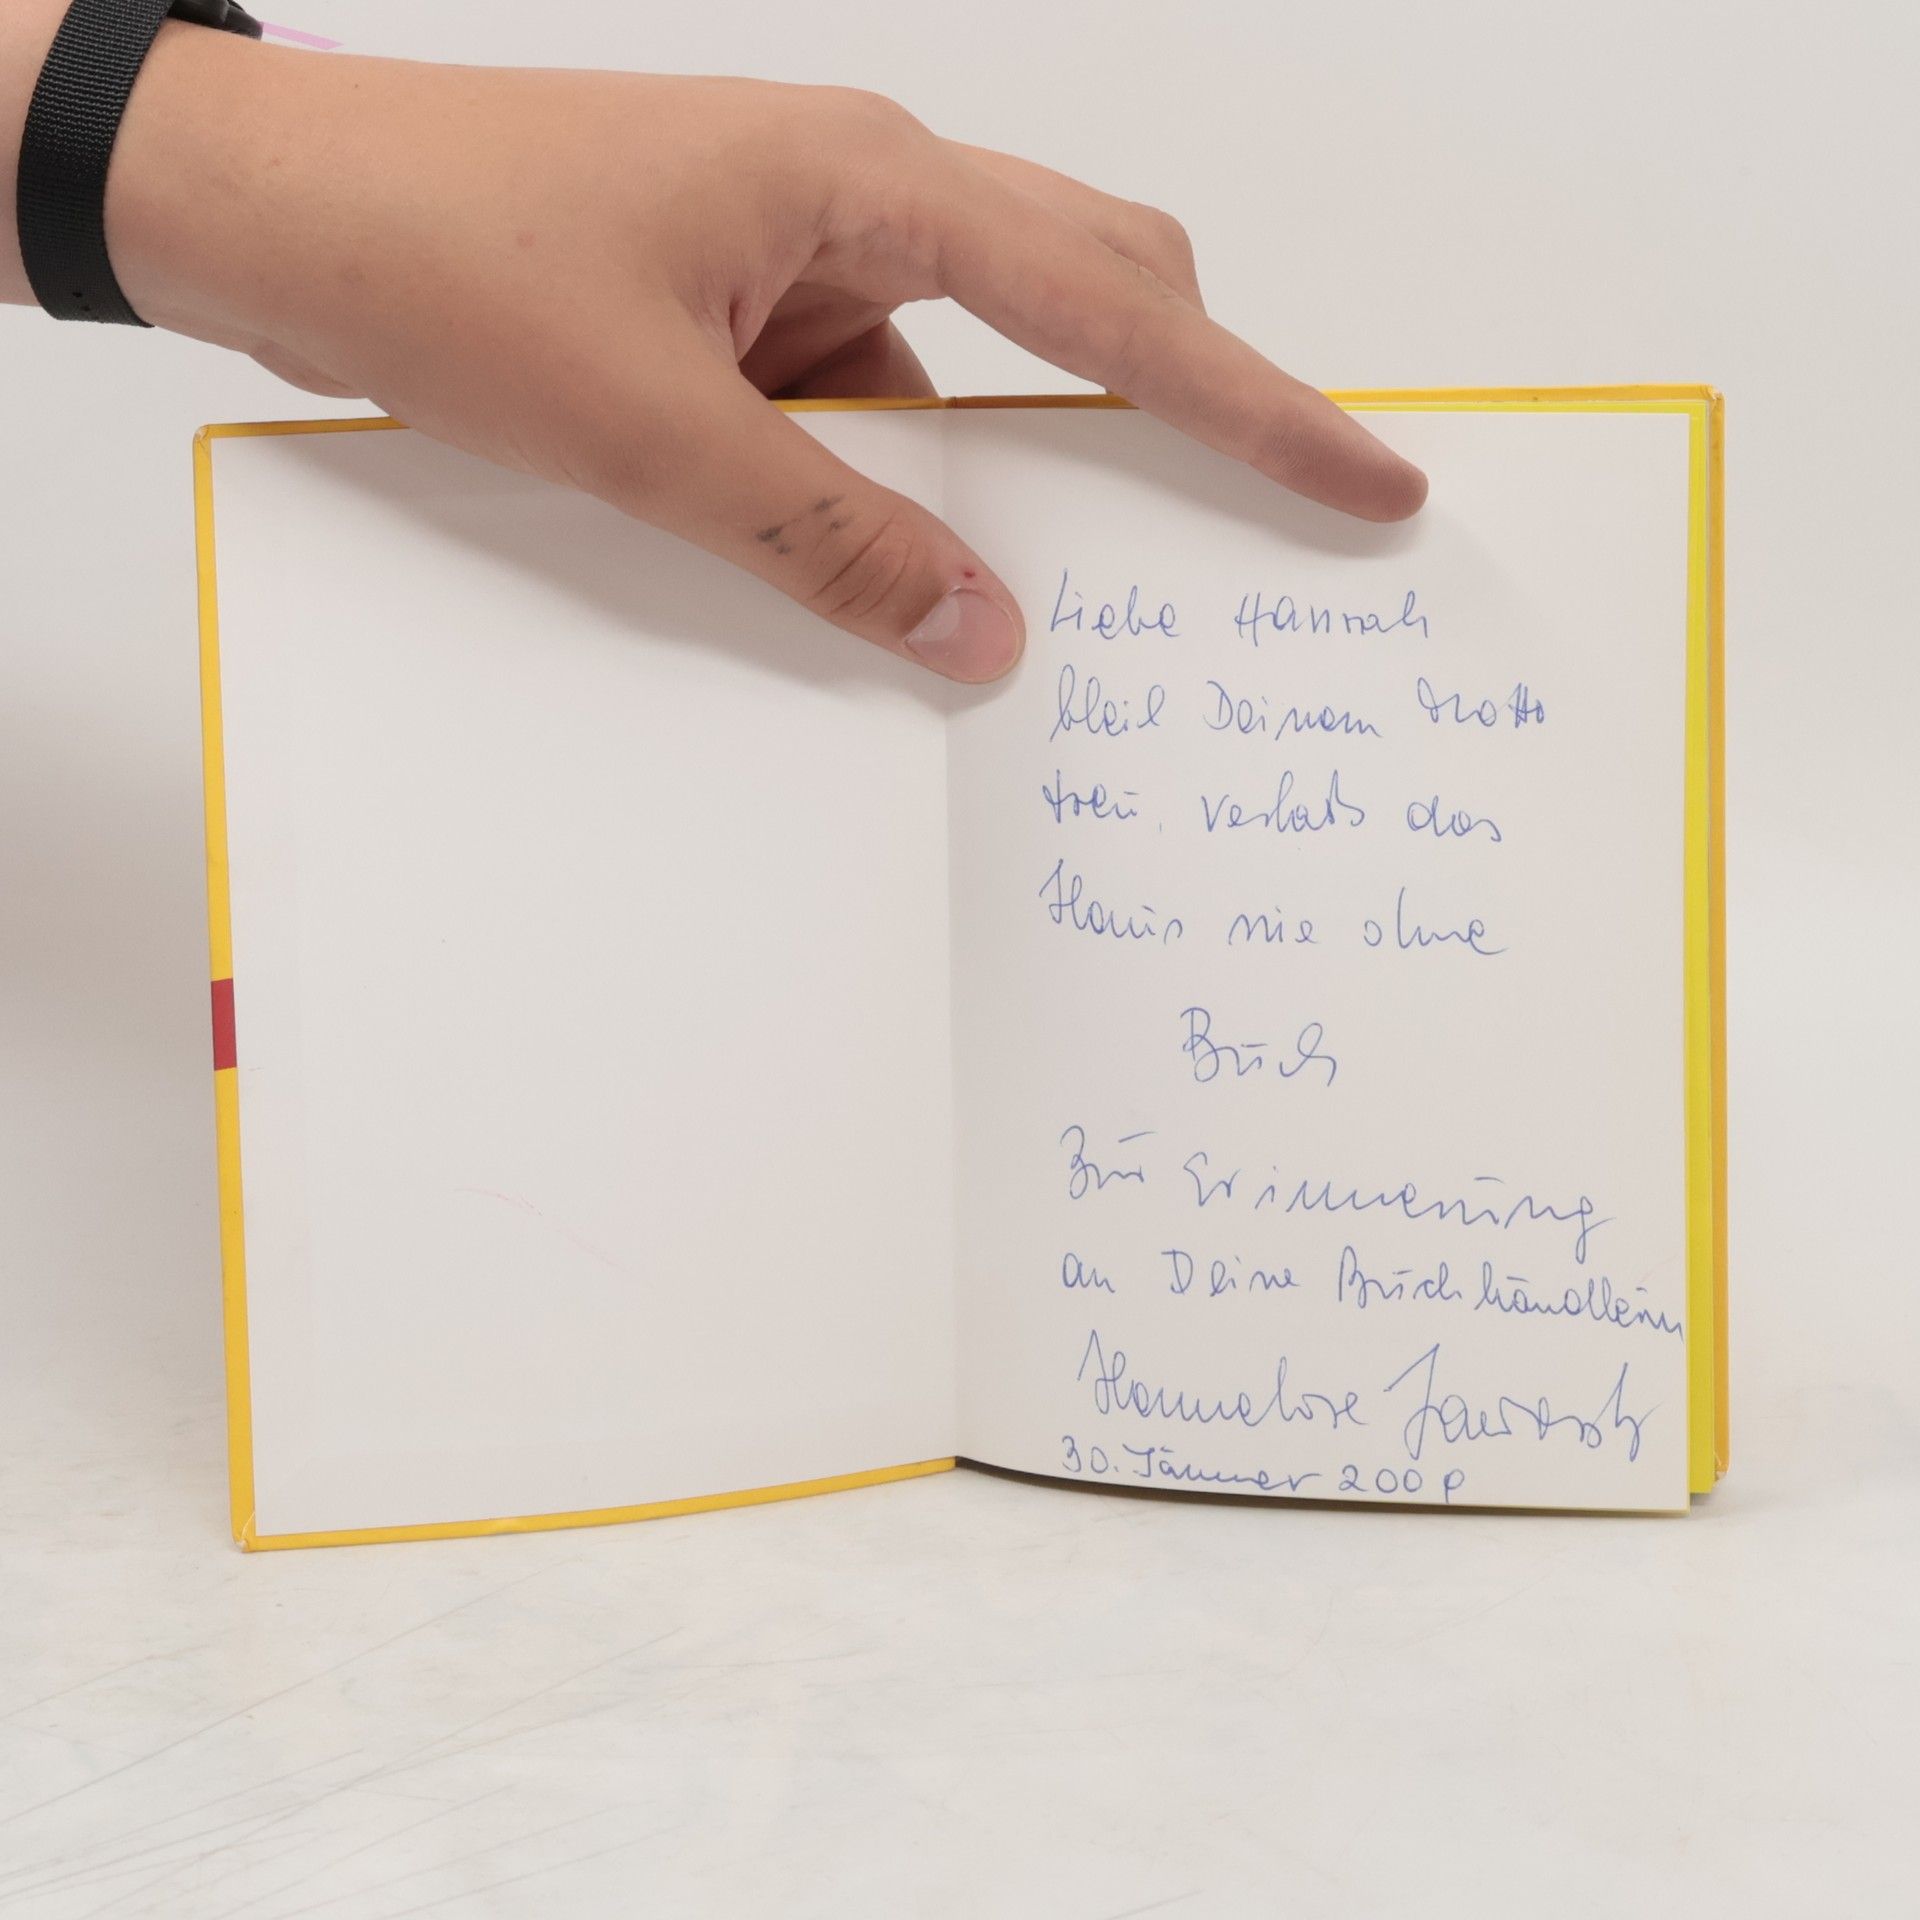 Liebe Hannah
bleib Deinem Motto
treu, Verlaß das
Haus nie ohne
Buch
Zur Erinnerung
an Deine Buchhändlerin
Hannelore
30. Jänner 200